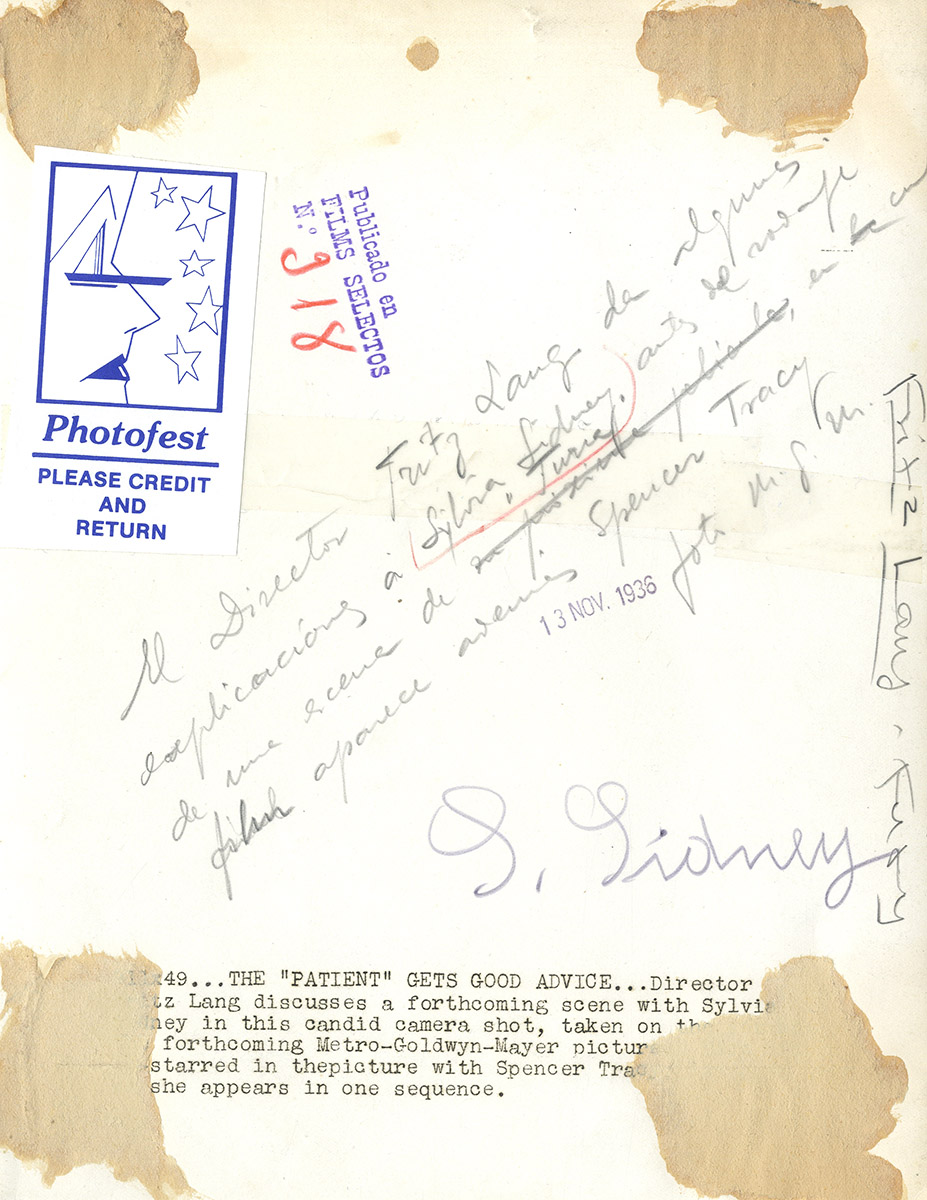 Photofest
PLEASE CREDIT
AND
RETURN
Publicado en
FILMS SELECTOS
N.º 318
El Director Fritz Lang da algunas
explicaciónes a Sylvia Sidney, "Furia", antes del rodaje
de una escena de su próxima película, en la cu
film aparece además Spencer Tracy
foto M. G. M.
13 NOV. 1936
Fritz Lang - Fury
S. Sidney
49...THE "PATIENT" GETS GOOD ADVICE...Director
tz Lang discusses a forthcoming scene with Sylvia
ney in this candid camera shot, taken on the
forthcoming Metro-Goldwyn-Mayer picture
starred in thepicture with Spencer Tra
she appears in one sequence.